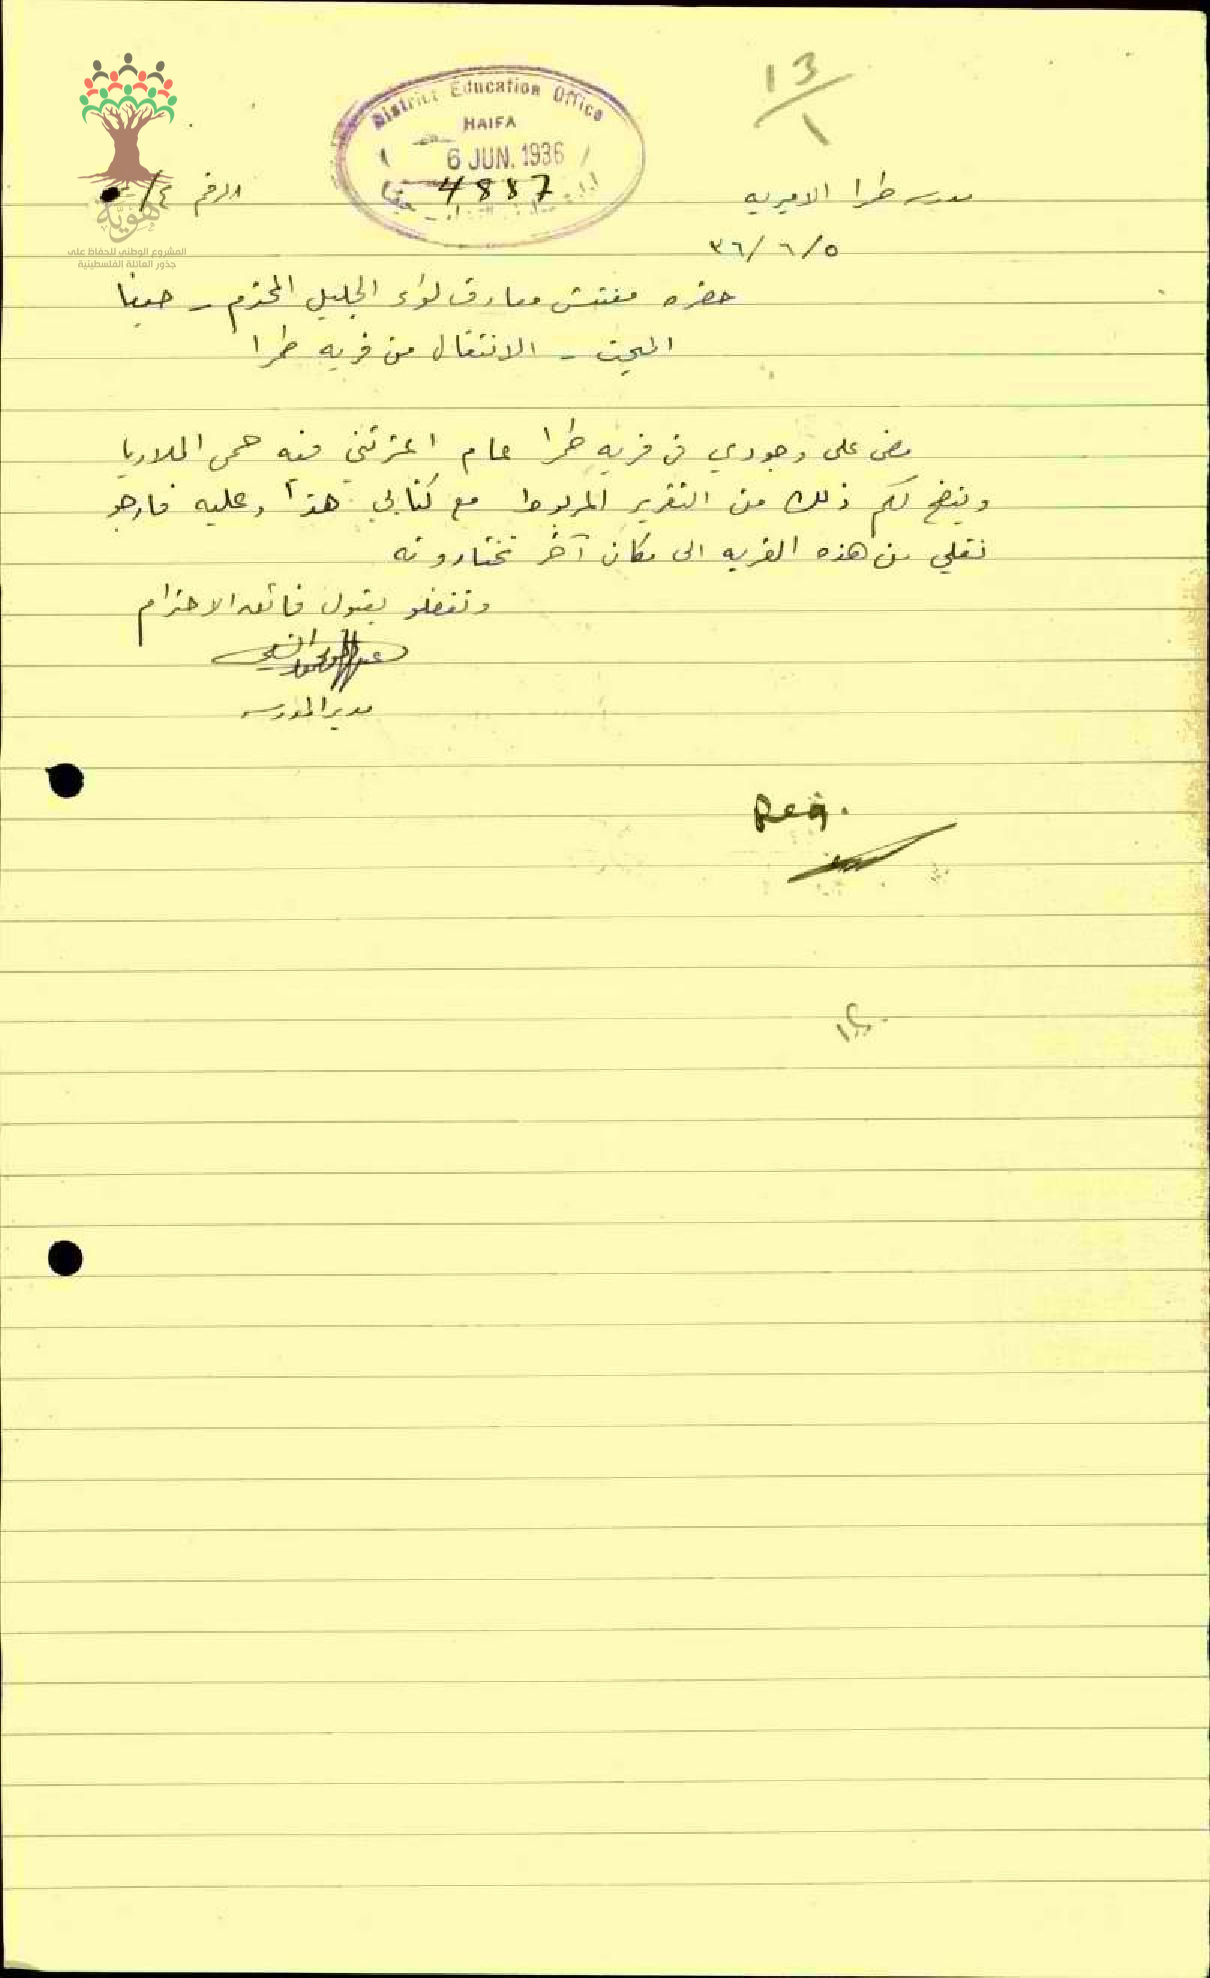 13
1
District Education Office
HAIFA
6 JUN. 1936
4887
حيفا
هوية
المشروع الوطني للحفاظ على
جذور العائلة الفلسطينية
مدرسه طمرا الاميريه
الرقم ٤/
٣٦/٦/٥
حضره مفتش معارف لواء الجليل المحترم - حيفا
البحث - الانتقال من قريه طمرا
مضى على وجودي في قريه طمرا عام اعترتني فيه حمى الملاريا
ويتضح لكم ذلك من التقرير المربوط مع كتابي هذا وعليه فارجو
نقلي من هذه القريه الى مكان آخر تختارونه
وتفضلو بقبول فائق الاحترام
مدير المدرسه
Reg.